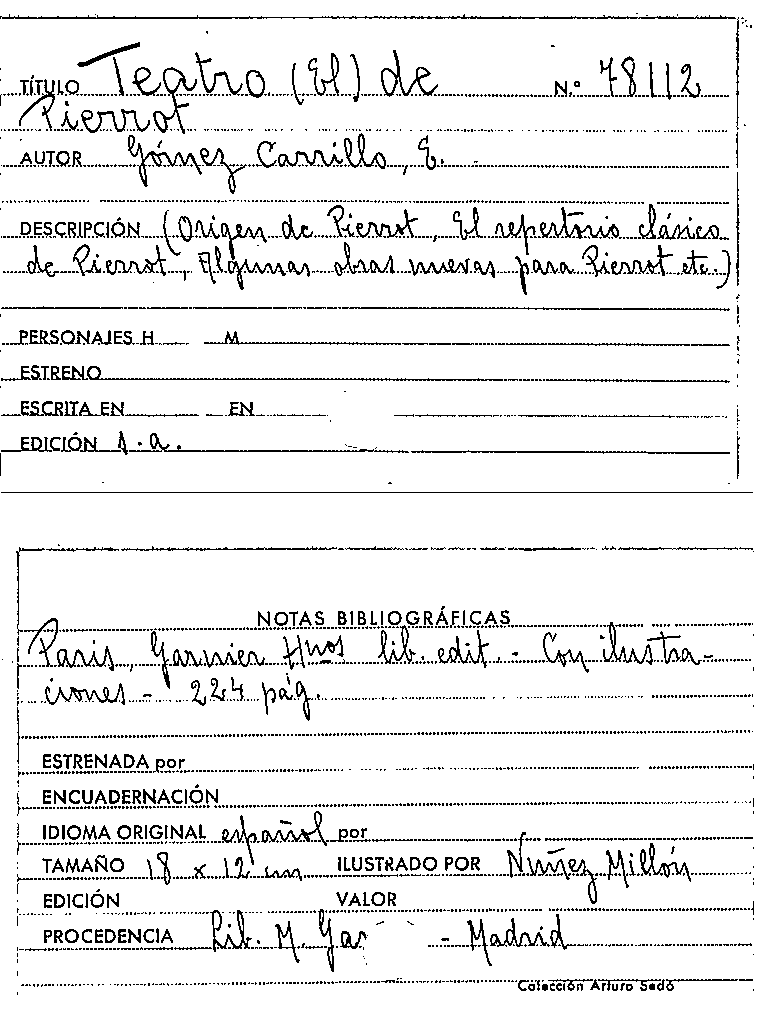 TÍTULO Teatro (El) de N.º 78112
Pierrot
AUTOR Gómez Carrillo, E.
DESCRIPCIÓN (Origen de Pierrot, El repertorio clásico
de Pierrot, Algunas obras nuevas para Pierrot etc.)
PERSONAJES H M
ESTRENO
ESCRITA EN EN
EDICIÓN s.a.
NOTAS BIBLIOGRÁFICAS
Paris, Garnier Hnos lib. edit. - Con ilustra-
ciones - 224 pág.
ESTRENADA por
ENCUADERNACIÓN
IDIOMA ORIGINAL español por
TAMAÑO 18 x 12 cm ILUSTRADO POR Nuñez Millón
EDICIÓN VALOR
PROCEDENCIA Lib. M. - Madrid
Colección Arturo Sedó